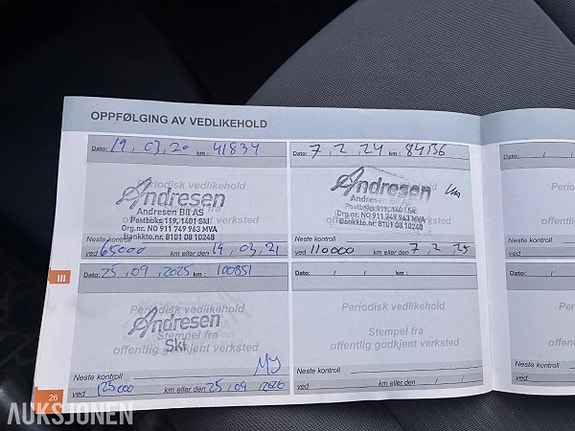 OPPFØLGING AV VEDLIKEHOLD
Dato: 19, 03, 20 km: 41834
Periodisk vedlikehold
Andresen
Andresen Bil AS
Postboks 119, 1401 Ski
Org.nr. NO 911 749 963 MVA
Bankkto.nr. 8101 08 10248
Neste kontroll
ved 65000 km eller den 19, 03, 21
Dato: 7, 2, 24 km: 84136
Andresen
Andresen Bil AS
Postboks 119, 1401 Ski
Org.nr. NO 911 749 963 MVA
Bankkto.nr. 8101 08 10248
Neste kontroll
ved 110000 km eller den 7, 2, 25
Dato: / /
Neste kontroll
ved
III
Dato: 25, 09, 2025 km: 100851
Periodisk vedlikehold
Stempel fra
offentlig godkjent verksted
Andresen
Ski
Neste kontroll
ved 125000 km eller den 25, 09, 2026
Dato: / / km:
Periodisk vedlikehold
Stempel fra
offentlig godkjent verksted
Neste kontroll
ved km eller den / /
Dato: / /
Neste kontroll
ved
26
AUKSJONEN